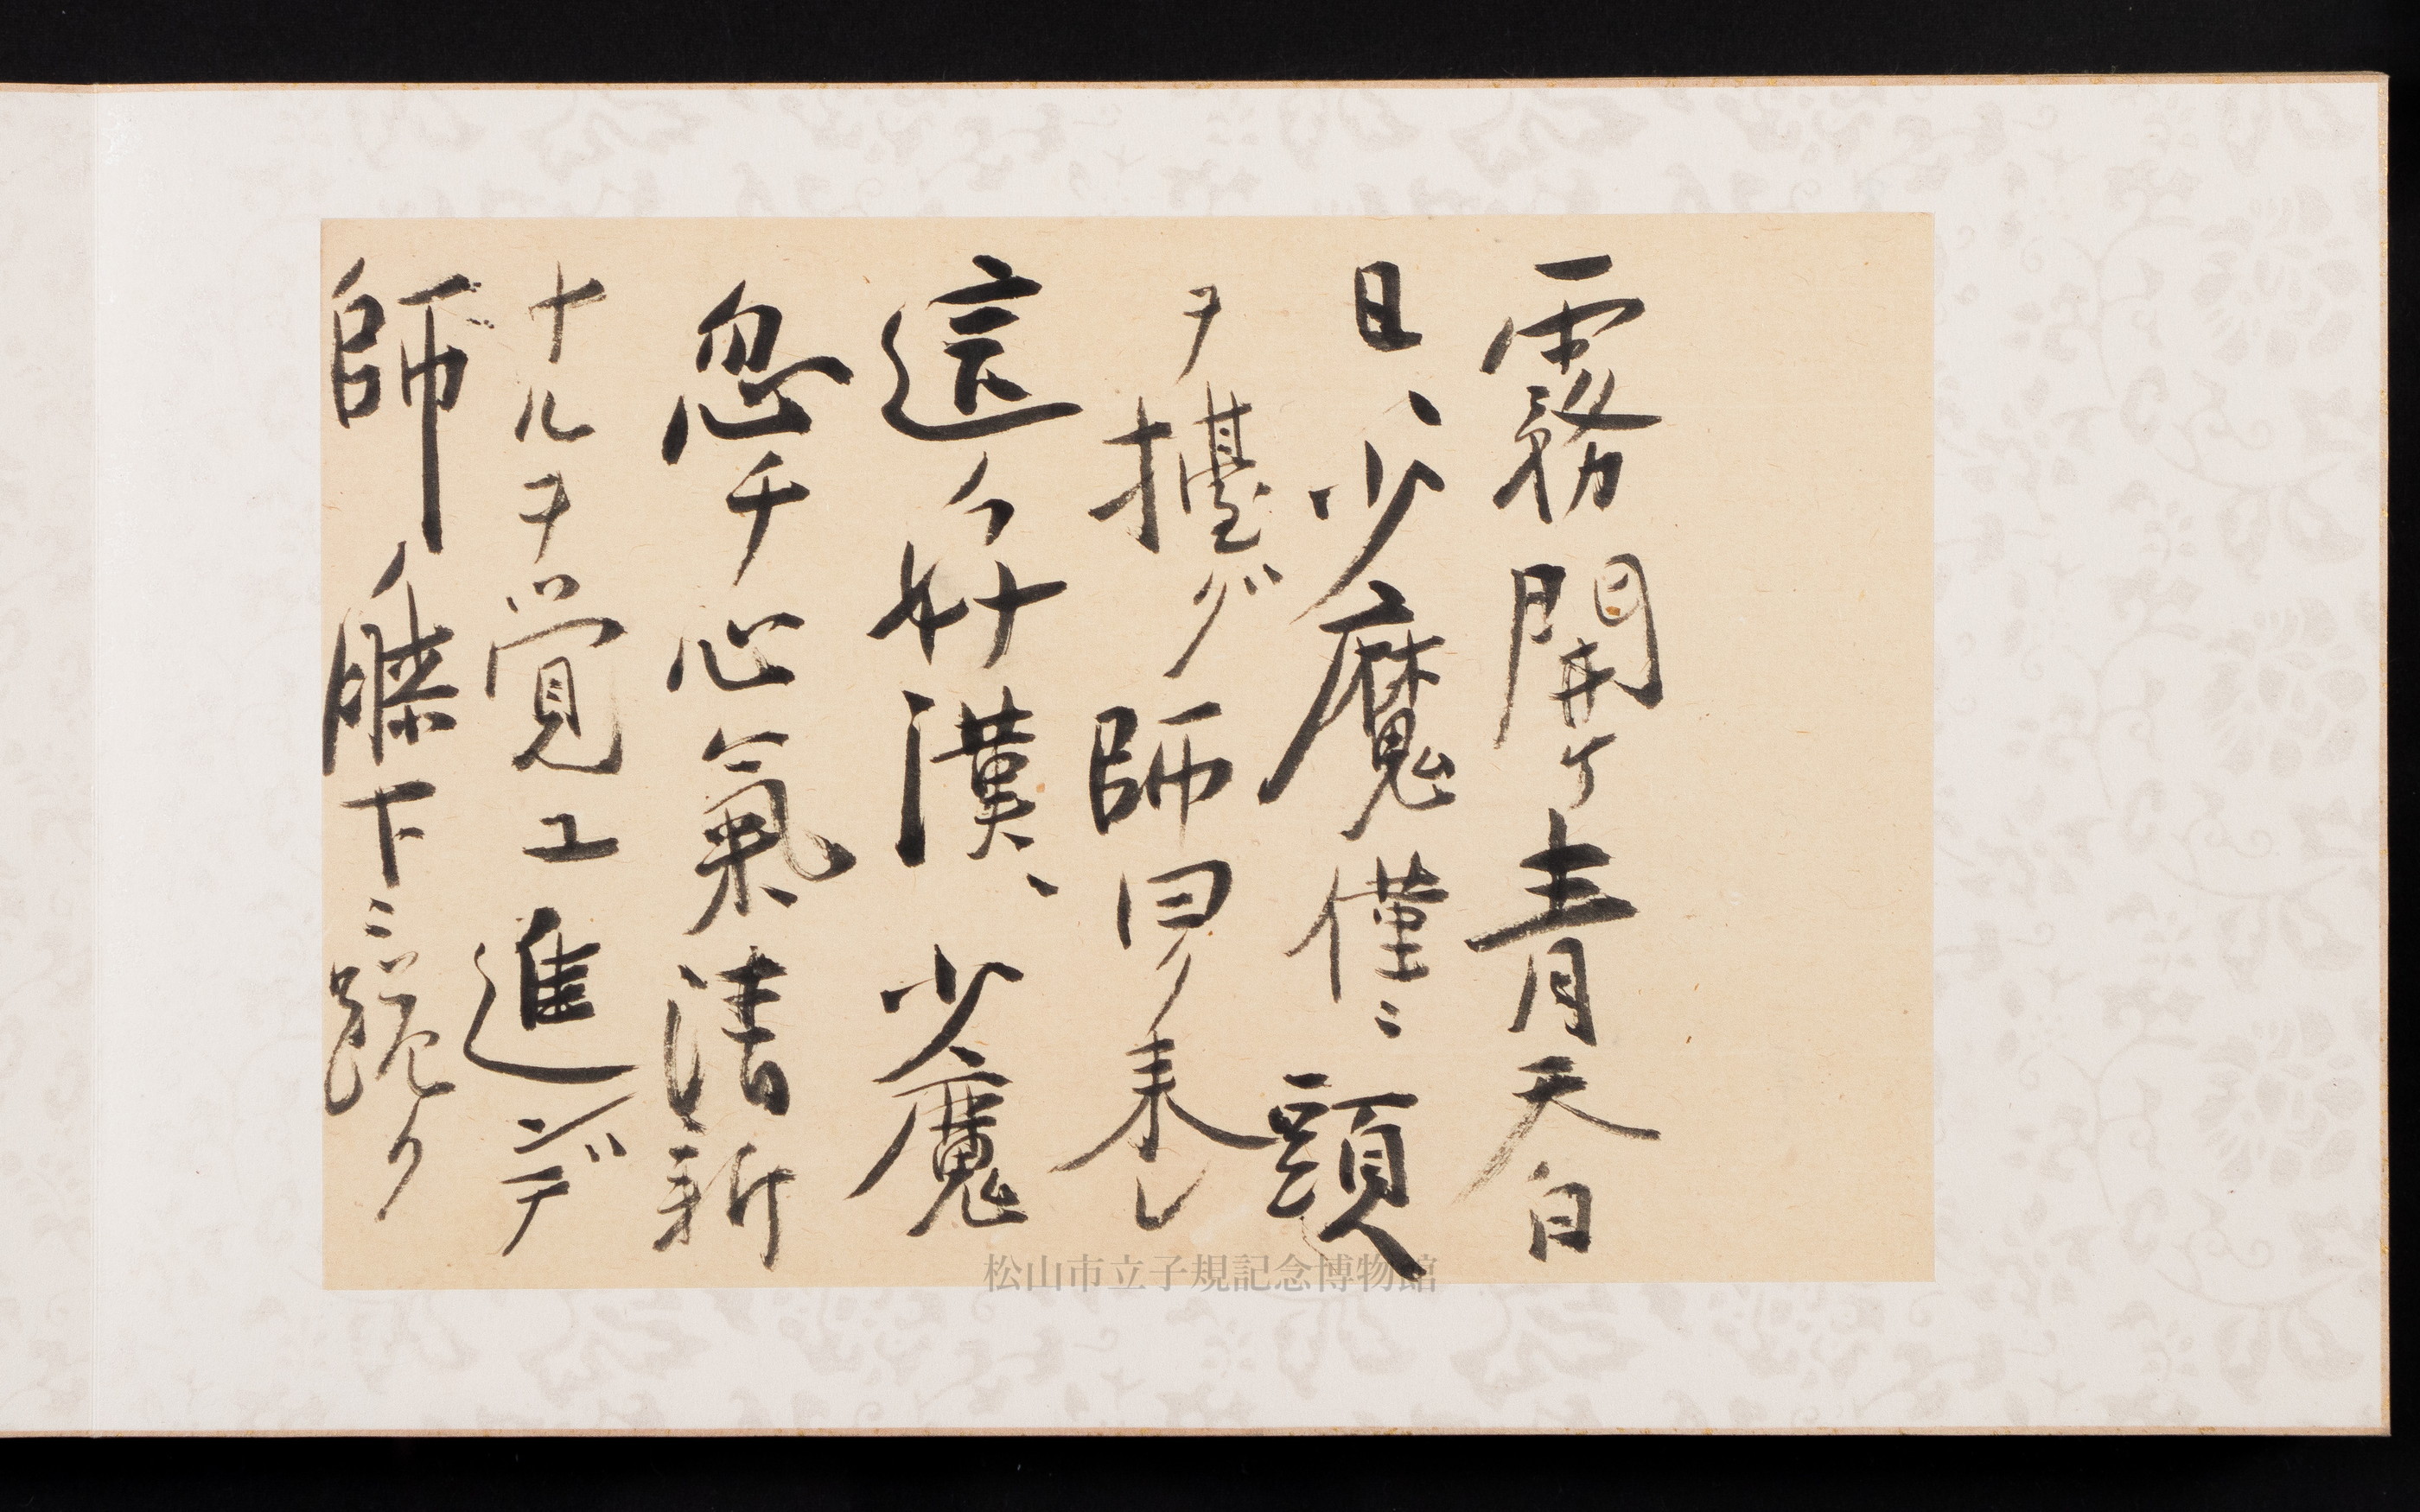 霧開ケ青天白
日、少魔僅ニ頭
ヲ擡グ師曰ク来レ
這ノ好漢、少魔
忽チ心氣清新
ナルヲ覚エ進ンデ
師ノ膝下ニ跪ク
松山市立子規記念博物館